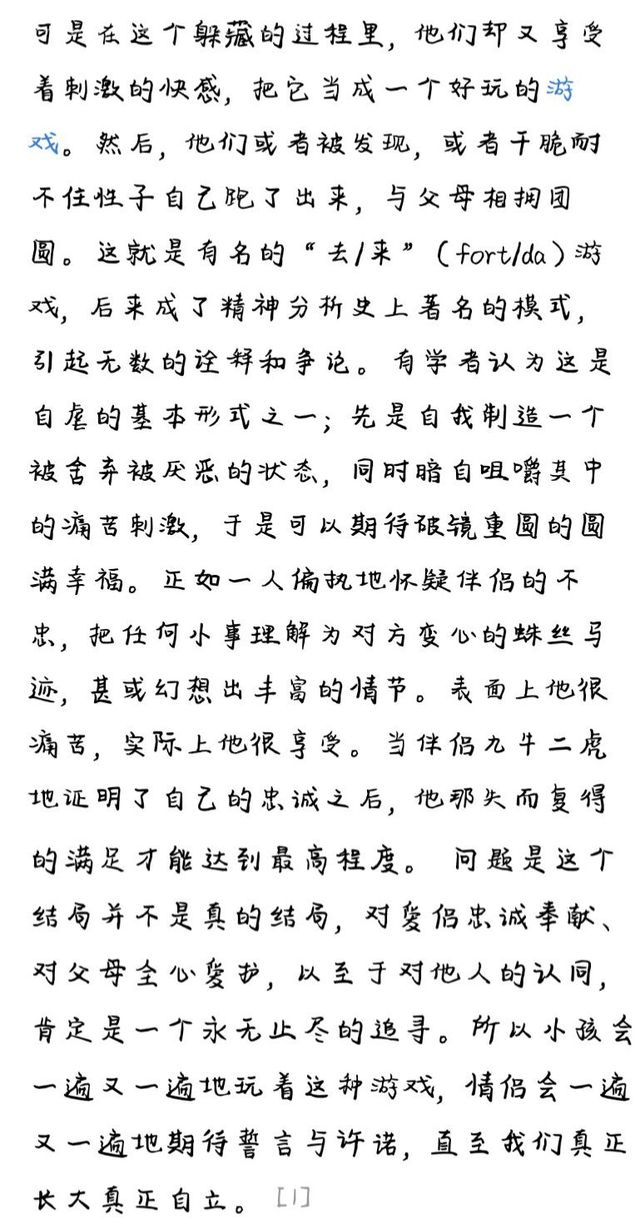 可是在这个躲藏的过程里，他们却又享受
着刺激的快感，把它当成一个好玩的游
戏。然后，他们或者被发现，或者干脆耐
不住性子自己跑了出来，与父母相拥团
圆。这就是有名的“去/来”（fort/da）游
戏，后来成了精神分析史上著名的模式，
引起无数的诠释和争论。有学者认为这是
自虐的基本形式之一；先是自我制造一个
被舍弃被厌恶的状态，同时暗自咀嚼其中
的痛苦刺激，于是可以期待破镜重圆的圆
满幸福。正如一人偏执地怀疑伴侣的不
忠，把任何小事理解为对方变心的蛛丝马
迹，甚或幻想出丰富的情节。表面上他很
痛苦，实际上他很享受。当伴侣九牛二虎
地证明了自己的忠诚之后，他那失而复得
的满足才能达到最高程度。 问题是这个
结局并不是真的结局，对爱侣忠诚奉献、
对父母全心爱护，以至于对他人的认同，
肯定是一个永无止尽的追寻。所以小孩会
一遍又一遍地玩着这种游戏，情侣会一遍
又一遍地期待誓言与许诺，直至我们真正
长大真正自立。[1]